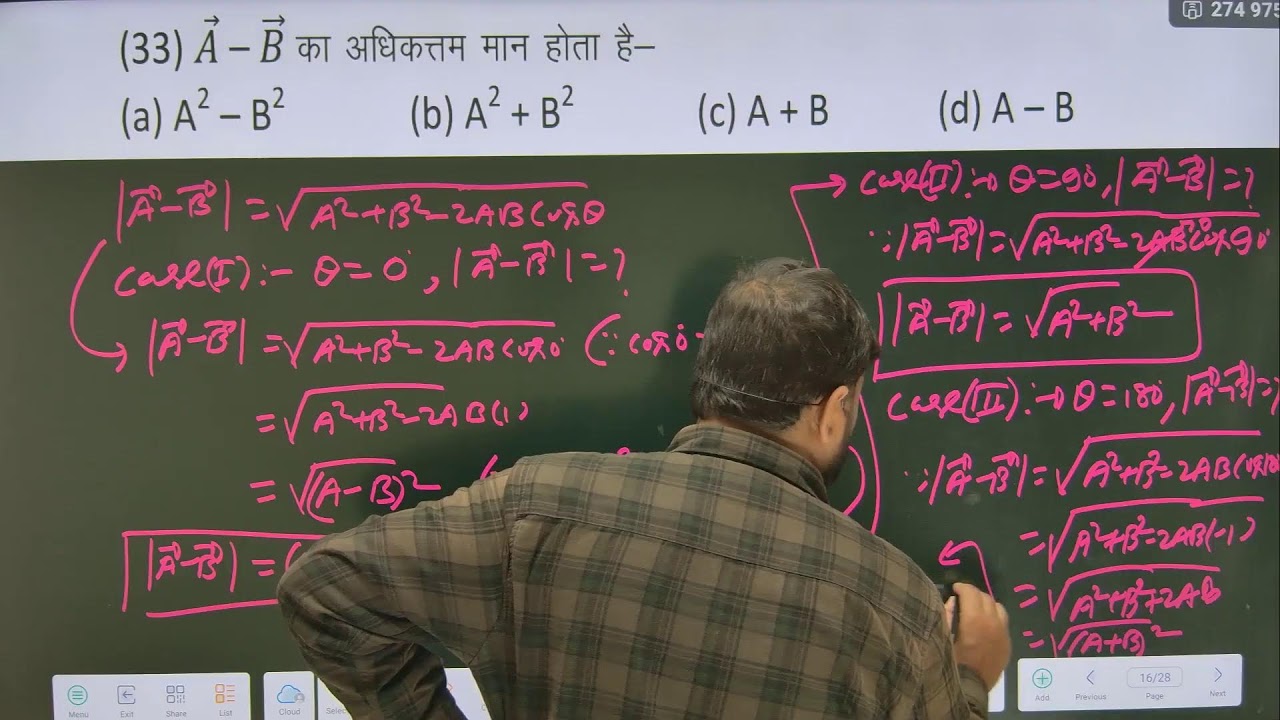 274 975
(33) A⃗ – B⃗ का अधिकत्तम मान होता है–
(a) A² – B² (b) A² + B² (c) A + B (d) A – B
|A⃗-B⃗| = √A²+B²-2AB Cosθ
Case(I):- θ=0°, |A⃗-B⃗|=?
|A⃗-B⃗| = √A²+B²-2AB Cos0° (∵ Cos0°
= √A²+B²-2AB(1)
= √(A-B)²
|A⃗-B⃗| = (
Case(II):→ θ=90°, |A⃗-B⃗|=?
∵|A⃗-B⃗| = √A²+B²-2AB Cos90°
|A⃗-B⃗| = √A²+B²
Case(III):→ θ=180°, |A⃗-B⃗|=?
∵|A⃗-B⃗| = √A²+B²-2AB Cos180
= √A²+B²-2AB(-1)
= √A²+B²+2AB
= √(A+B)²
Menu Exit Share List Cloud Add Previous 16/28 Page Next